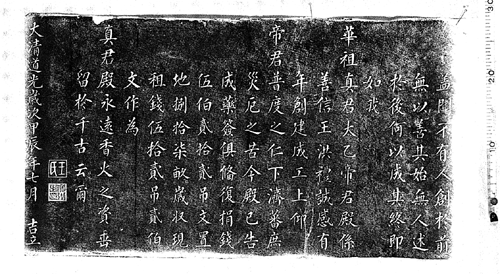 蓋聞不有人創於前
無以善其始無人述
於後何以成其終即
如我
華祖真君太乙帝君殿係
善信王洪禮誠感有
年創建成工上仰
帝君普度之仁下濟蕃庶
災厄之苦今殿已告
成藥簽俱修復捐錢
伍伯貳拾貳吊文置
地捌拾柒畝歲收現
租錢伍拾貳吊貳伯
文作為
真君殿永遠香火之資垂
留於千古云爾
大清道光歲次甲辰年十月 吉立